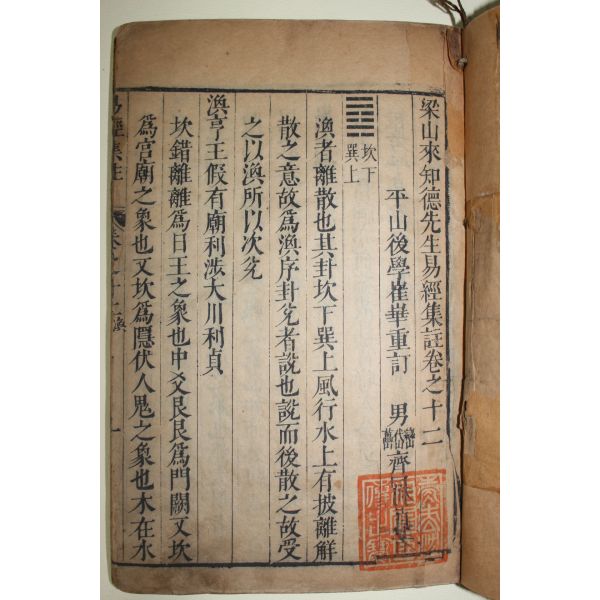 梁山來知德先生易經集註卷之十二
平山後學崔華重訂 男
齊
坎下
巽上
渙者離散也其卦坎下巽上風行水上有披離解
散之意故爲渙序卦兌者說也說而後散之故受
之以渙所以次兌
渙亨王假有廟利涉大川利貞
坎錯離離爲日王之象也中爻艮艮爲門闕又坎
爲宮廟之象也又坎爲隱伏人鬼之象也木在水
易經集註 卷之十二 渙 一